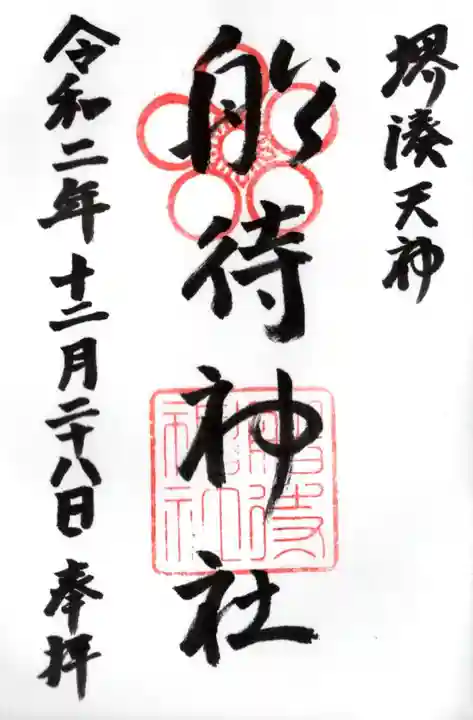 堺湊天神
船待神社
令和二年十二月二十八日
奉拝